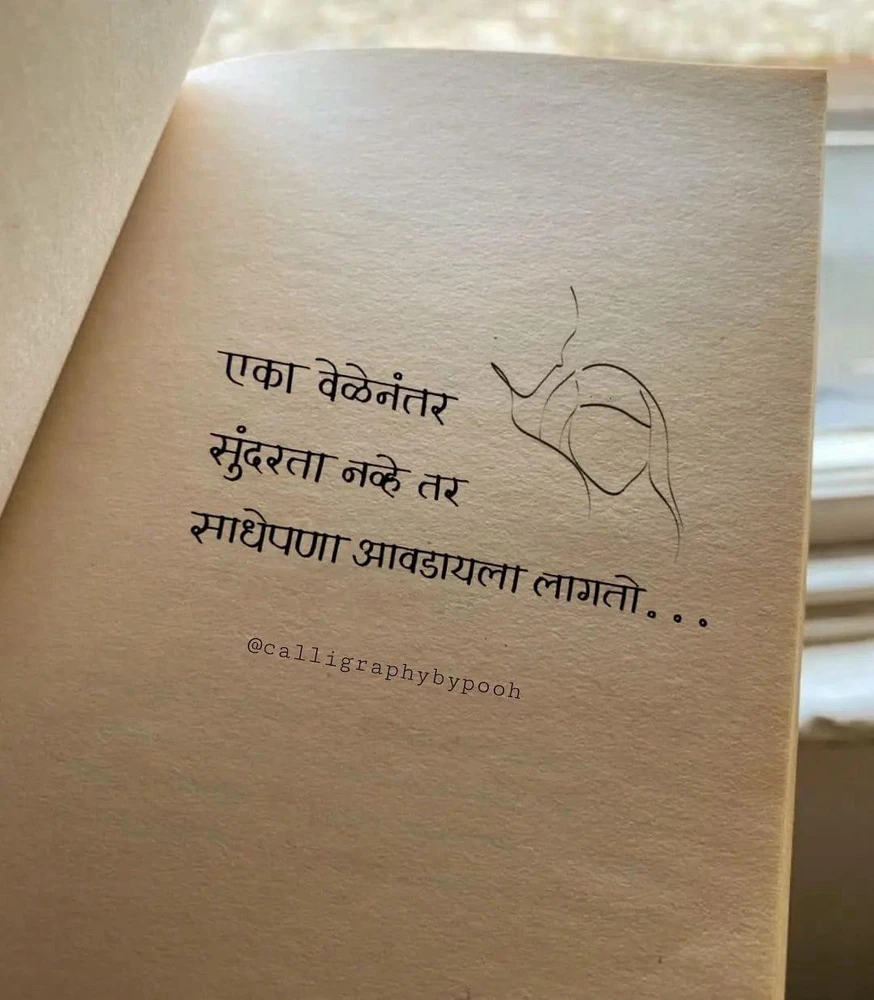 एका वेळेनंतर
सुंदरता नव्हे तर
साधेपणा आवडायला लागतो...
@calligraphybypooh